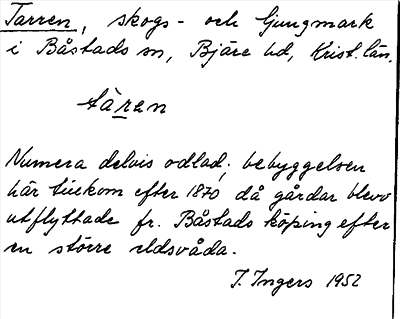 Tarren, skogs- och ljungmark
i Båstads sn, Bjäre hd, Krist. län.
tàren
Numera delvis odlad; bebyggelsen
här tillkom efter 1870, då gårdar blevo
utflyttade fr. Båstads köping efter
en större eldsvåda.
I. Ingers 1952